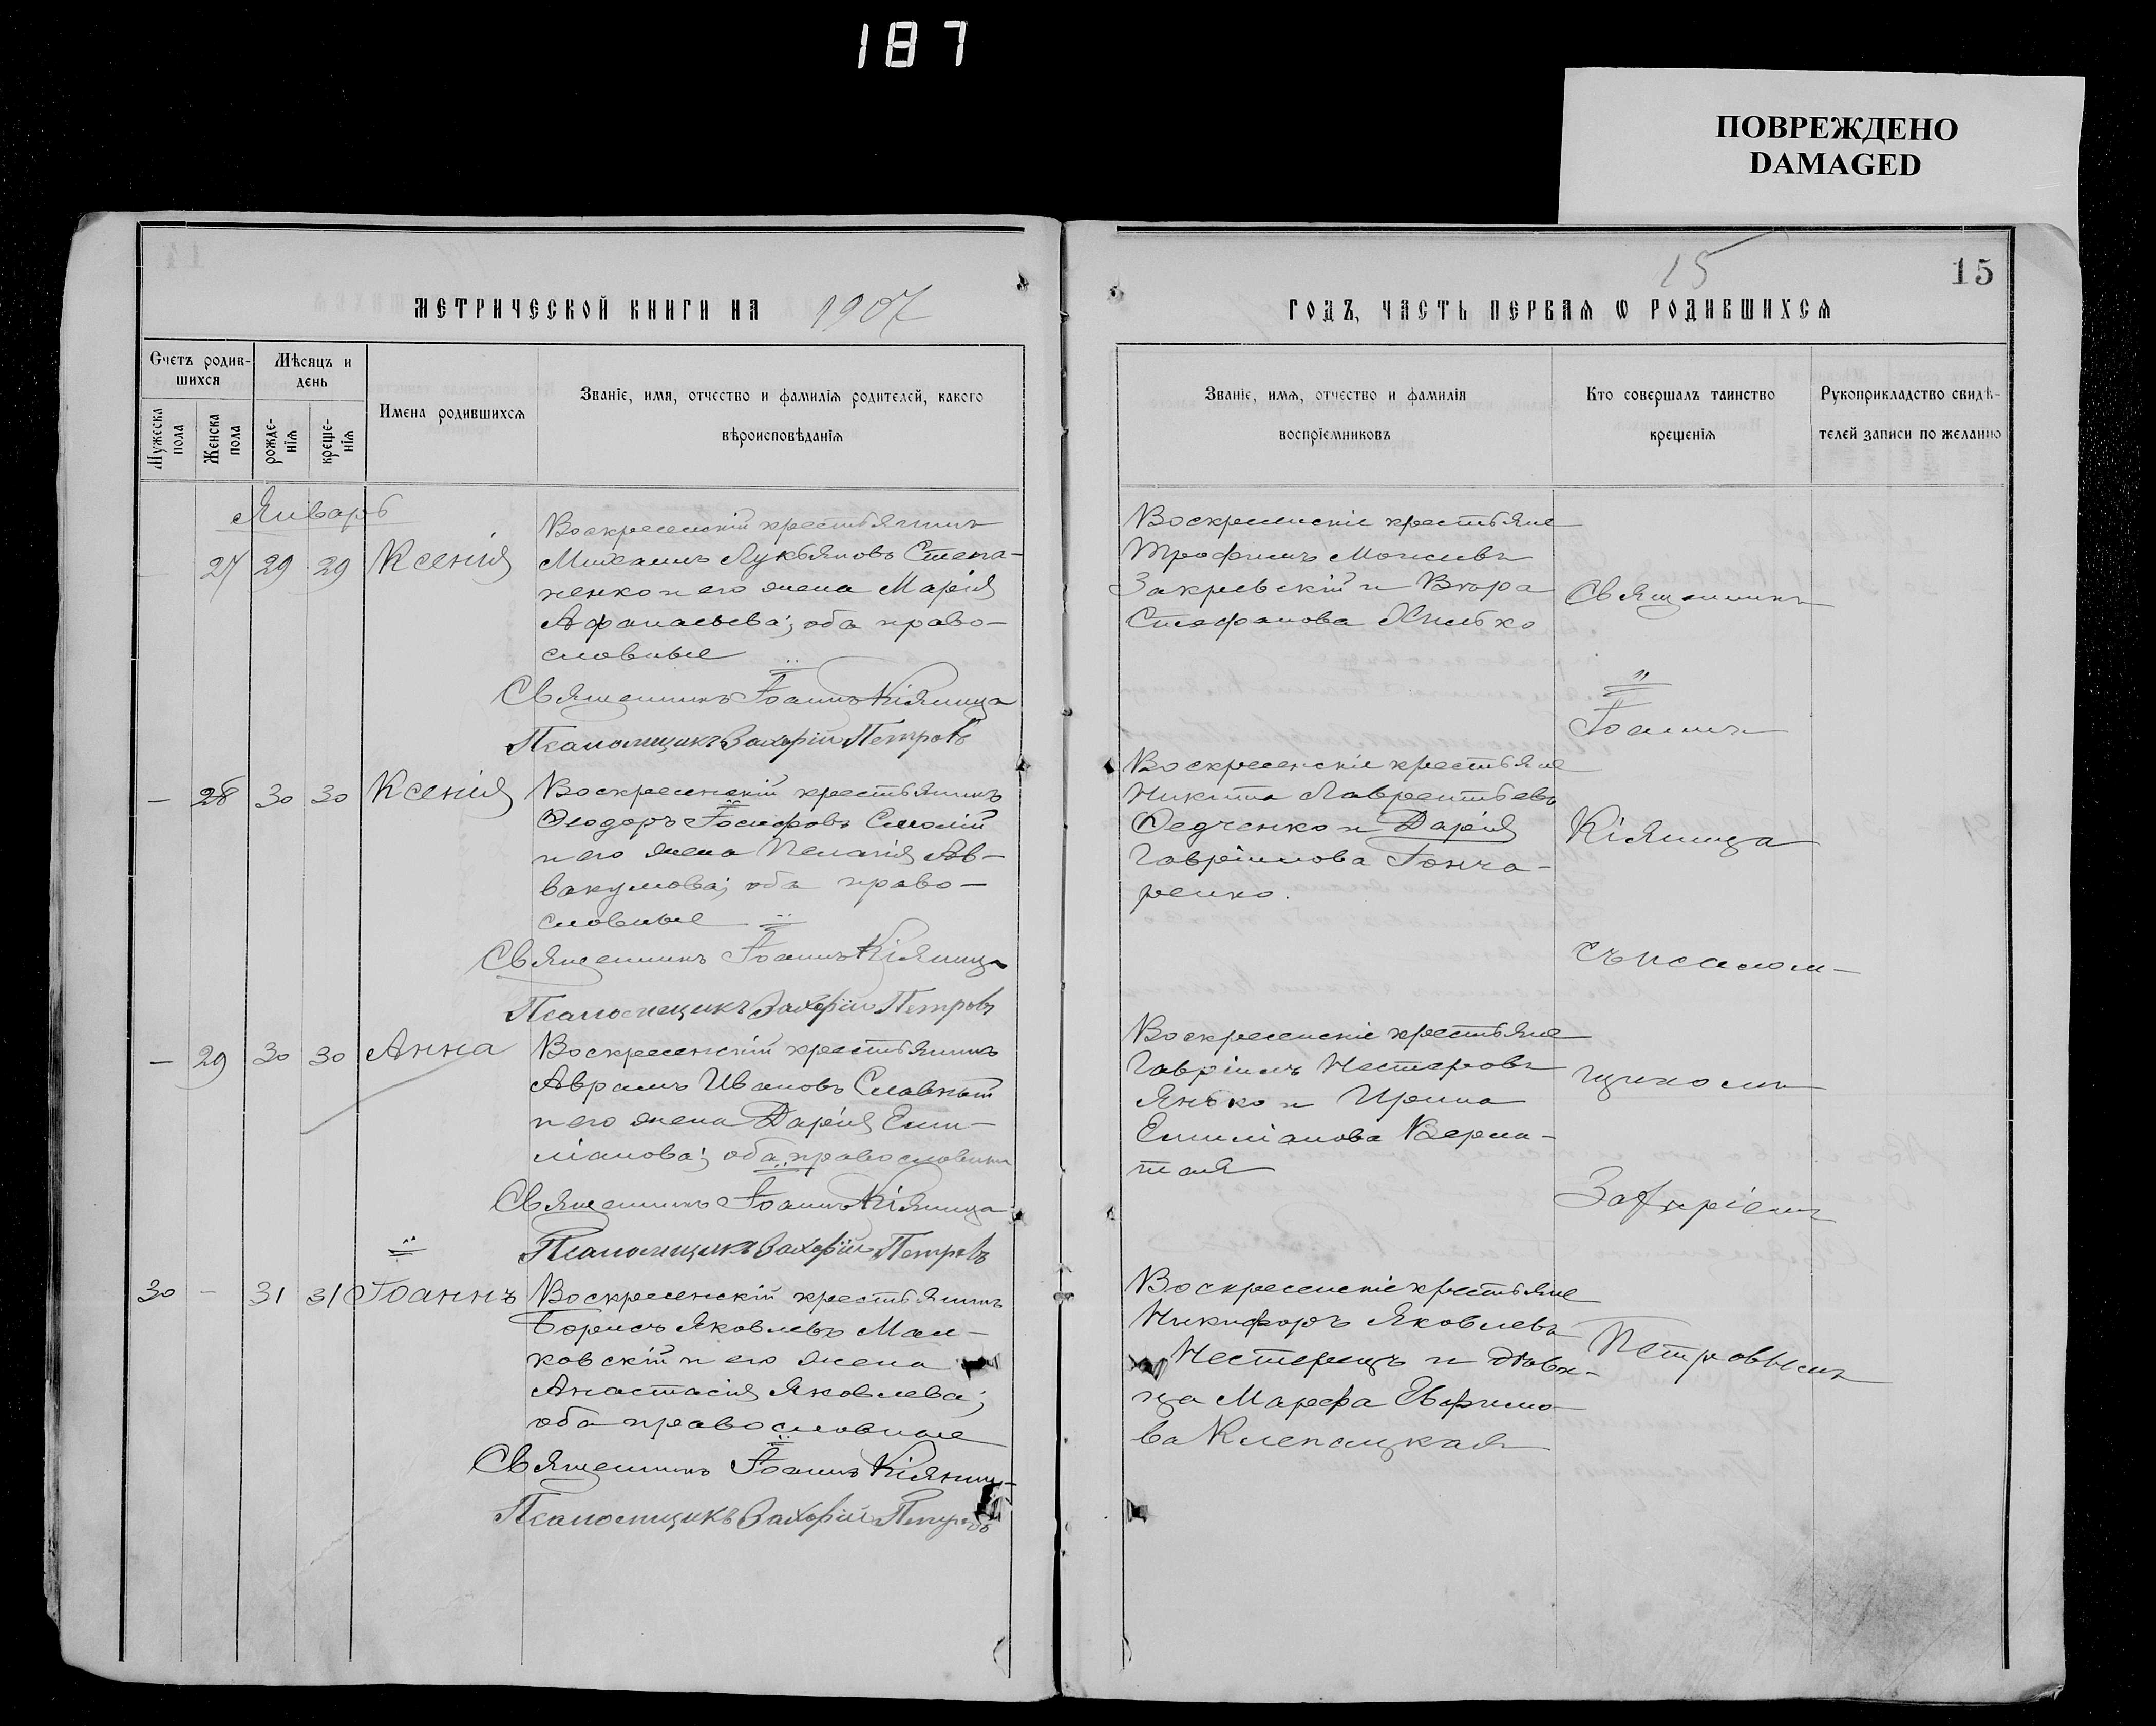 187
ПОВРЕЖДЕНО
DAMAGED
15
15
МЕТРИЧЕСКОЙ КНИГИ НА 1907
ГОДЪ, ЧАСТЬ ПЕРВАЯ Ѡ РОДИВШИХСЯ
Счетъ родив-
шихся
Мужеска
пола
Женска
пола
Мѣсяцъ и
день
рожде-
нія
креще-
нія
Имена родившихся
Званіе, имя, отчество и фамилія родителей, какого
вѣроисповѣданія
Званіе, имя, отчество и фамилія
воспріемниковъ
Кто совершалъ таинство
крещенія
Рукоприкладство свидѣ-
телей записи по желанію
Январь
27 29 29 Ксенія
Воскресенскій крестьянинъ
Михаилъ Лукьяновъ Степа-
ненко и его жена Марія
Афанасьева; оба право-
славные
Священникъ Іоаннъ Кіяница
Псаломщикъ Захарій Петровъ
Воскресенскіе крестьяне
Трофимъ Моисеевъ
Закревскій и Вѣра
Стефанова
— 28 30 30 Ксенія
Воскресенскій крестьянинъ
Ѳеодоръ Іосифовъ Смолій
и его жена Пелагія Ав-
вакумова; оба право-
славные
Священникъ Іоаннъ Кіяница
Псаломщикъ Захарій Петровъ
Воскресенскіе крестьяне
Никита Лаврентьевъ
Ѳедченко и Дарія
Гавріилова Гонча-
ренко.
— 29 30 30 Анна
Воскресенскій крестьянинъ
Аврамъ Ивановъ Славный
и его жена Дарія Еми-
ліанова; оба православные
Священникъ Іоаннъ Кіяница
Псаломщикъ Захарій Петровъ
Воскресенскіе крестьяне
Гавріилъ Нестеровъ
Янько и Ирина
Емиліанова
30 — 31 31 Іоаннъ
Воскресенскій крестьянинъ
Борисъ Яковлевъ Мал-
ковскій и его жена
Анастасія Яковлева;
оба православные
Священникъ Іоаннъ Кіяниц-
Псаломщикъ Захарій Петровъ
Воскресенскіе крестьяне
Никифоръ Яковлевъ
Нестерецъ и дѣви-
ца Марфа Евфимо-
ва Клепацкая
Священникъ
Іоаннъ
Кіяница
съ псалом-
щикомъ
Захаріемъ
Петровымъ